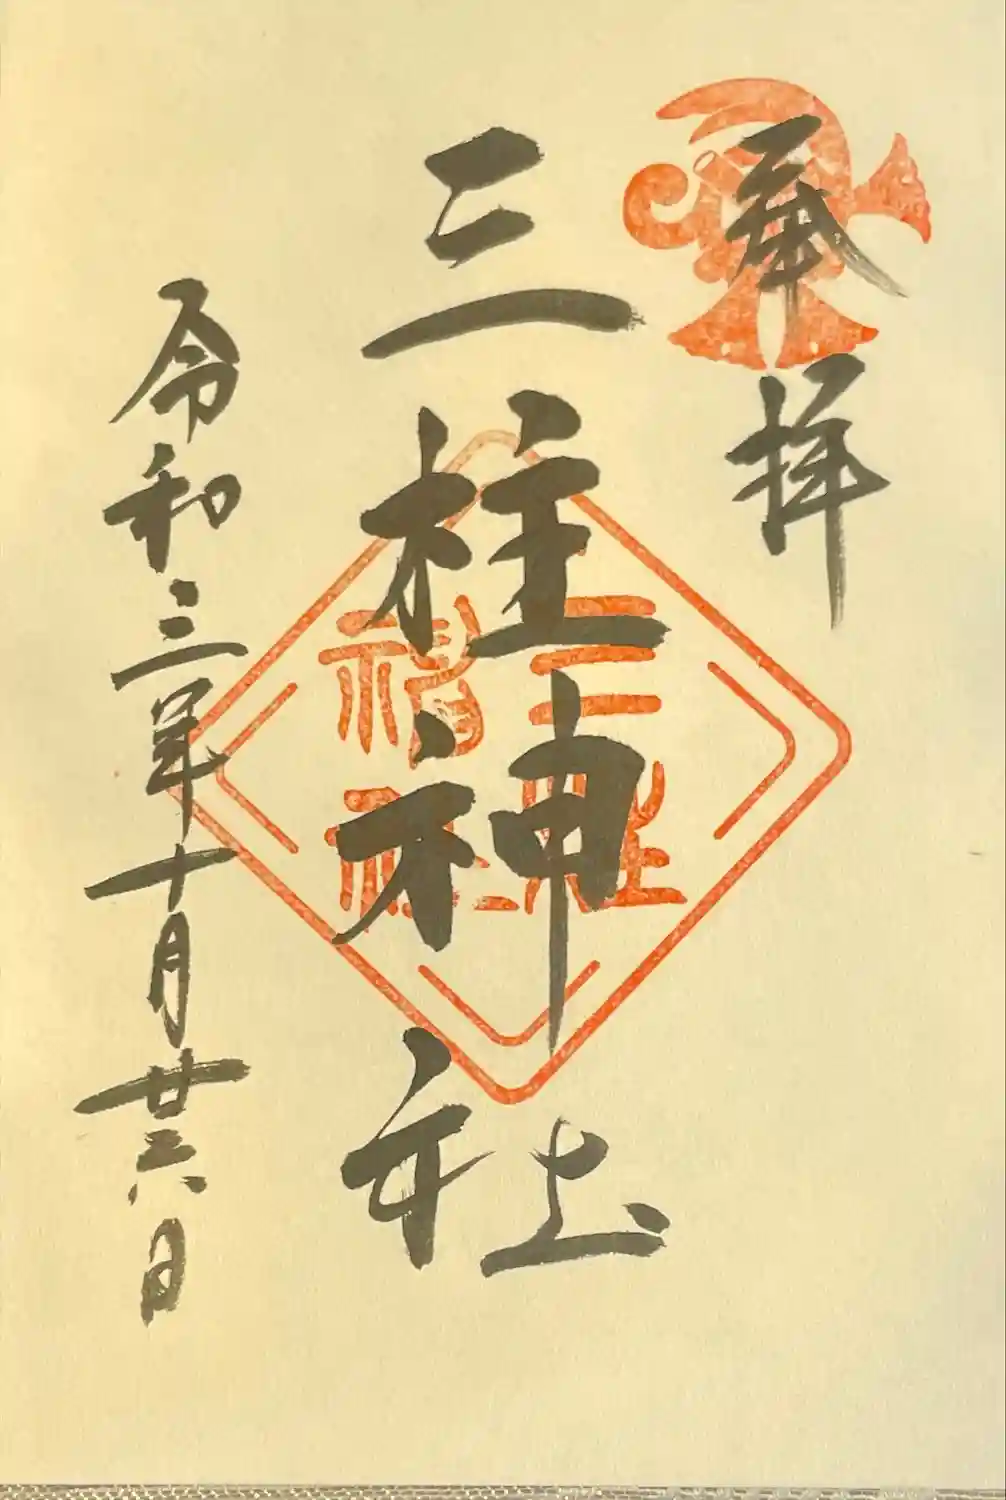 奉拝
三柱神社
三柱神社
令和三年十月廿六日